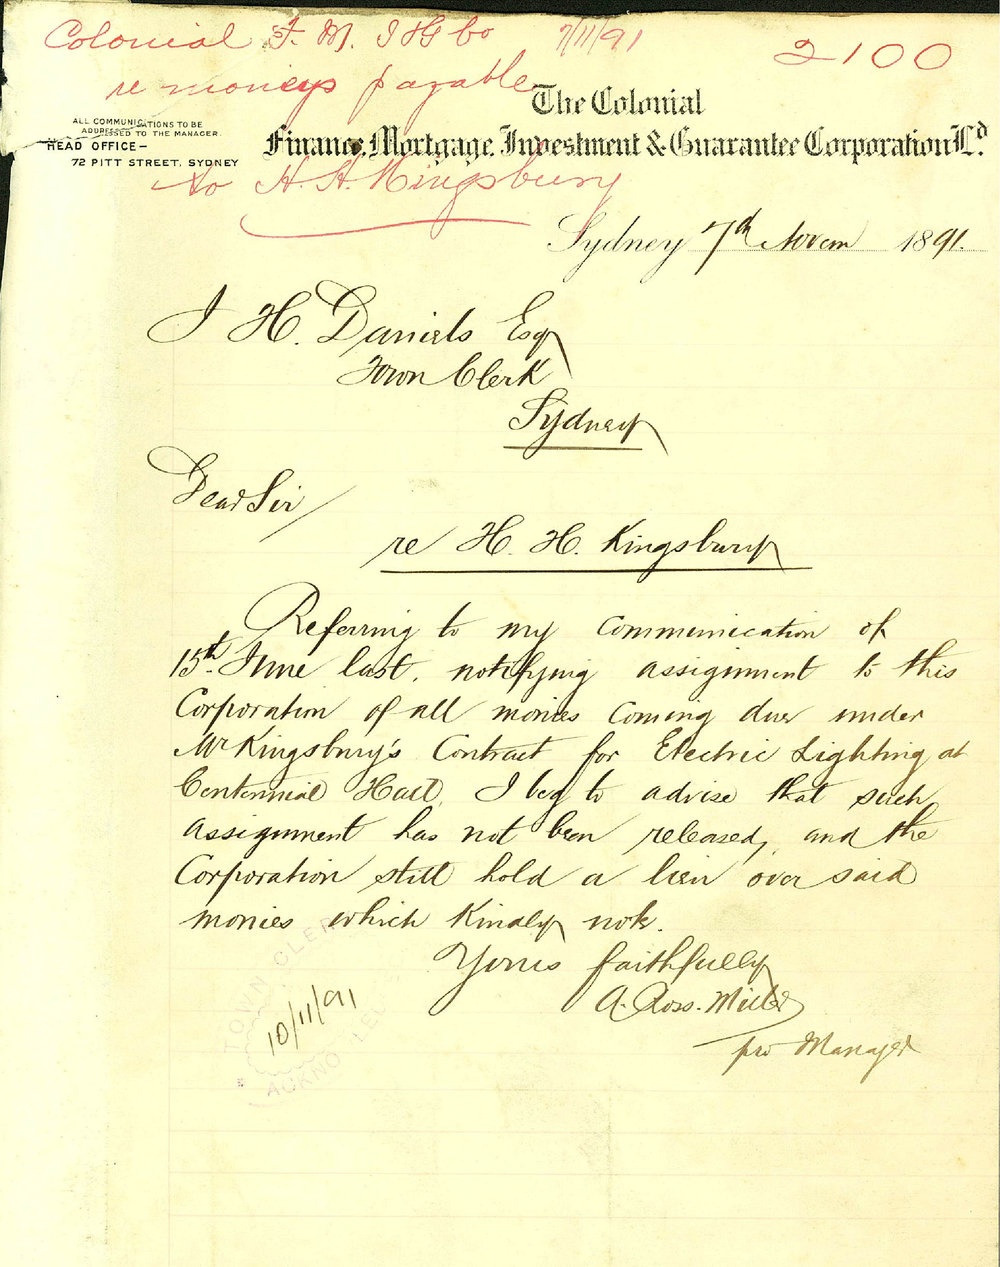 Colonial F. M. I & G Co 7/11/91
2100
re moneys payable
to H. H. Kingsbury
The Colonial
Finance, Mortgage, Investment & Guarantee Corporation Ld.
ALL COMMUNICATIONS TO BE
ADDRESSED TO THE MANAGER.
HEAD OFFICE—
72 PITT STREET, SYDNEY
Sydney 7th Novem 1891.
J H. Daniels Esq
Town Clerk
Sydney
Dear Sir/
re H. H. Kingsbury
Referring to my communication of
15th June last, notifying assignment to this
Corporation of all monies coming due under
Mr Kingsbury's Contract for Electric Lighting at
Centennial Hall, I beg to advise that such
assignment has not been released, and the
Corporation still hold a lien over said
monies which kindly note.
Yours faithfully
A. Ross. Miller
pro Manager
TOWN CLER
10/11/91
ACKNO LED